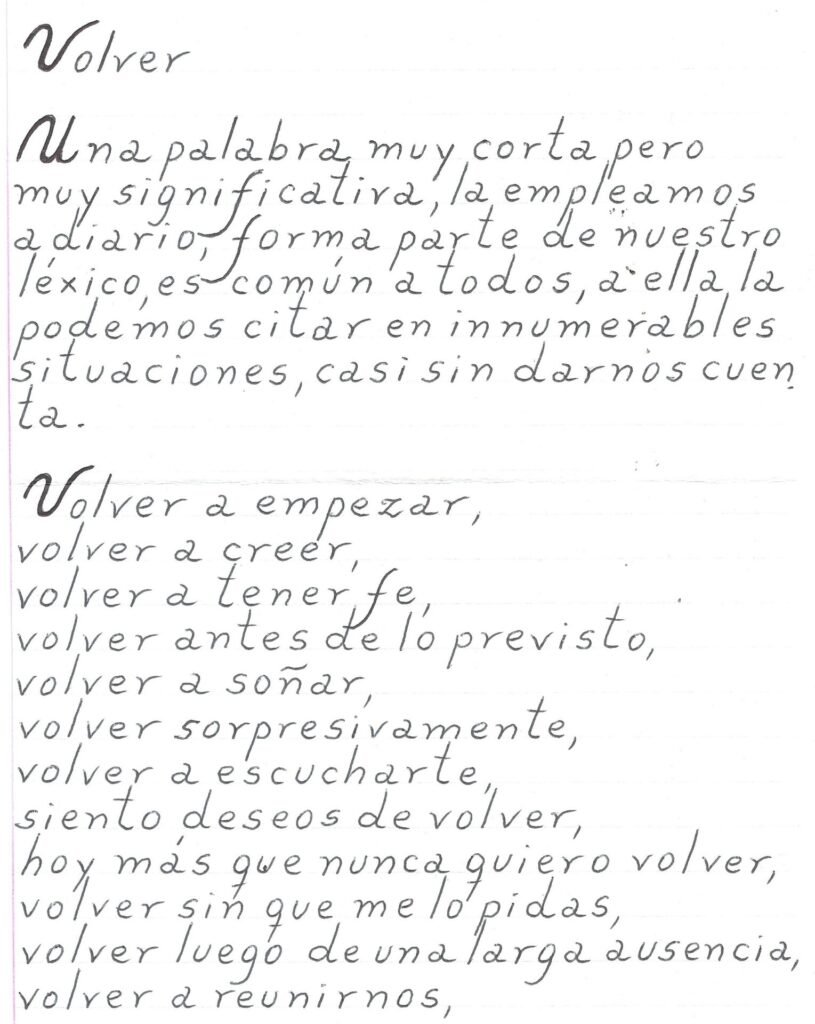 Volver
Una palabra muy corta pero
muy significativa, la empleamos
a diario, forma parte de nuestro
léxico, es común a todos, a ella la
podemos citar en innumerables
situaciones, casi sin darnos cuen
ta.
Volver a empezar,
volver a creer,
volver a tener fe,
volver antes de lo previsto,
volver a soñar,
volver sorpresivamente,
volver a escucharte,
siento deseos de volver,
hoy más que nunca quiero volver,
volver sin que me lo pidas,
volver luego de una larga ausencia,
volver a reunirnos,